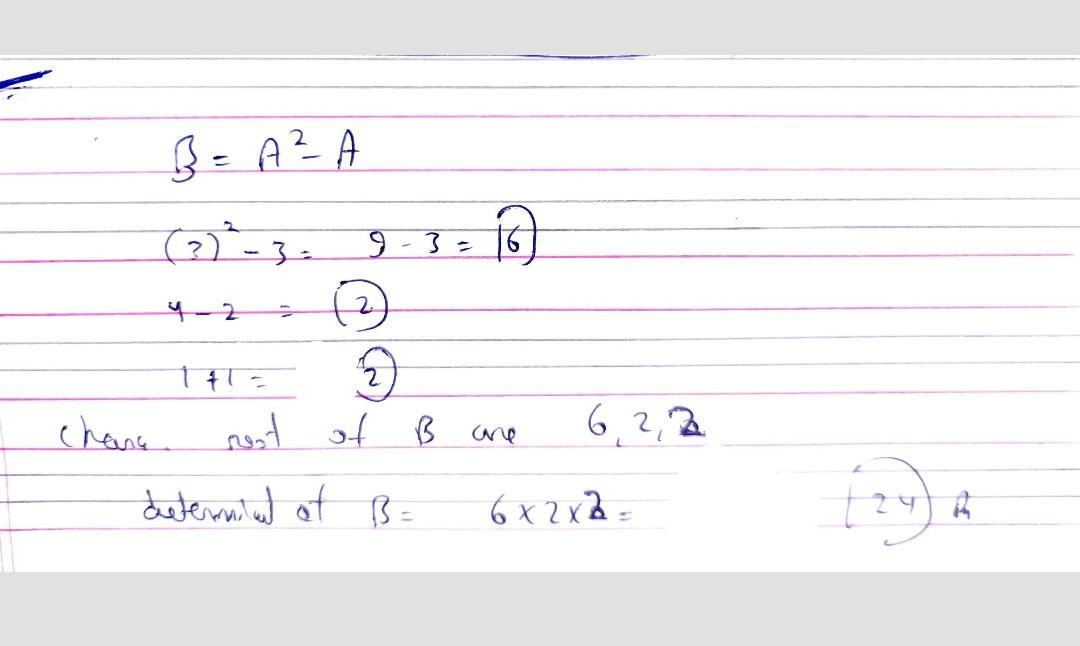 B = A² - A
(3)² - 3 = 9 - 3 = 6
4 - 2 = 2
1 + 1 = 2
Chara. root of B are 6, 2, 2
determinal of B = 6 × 2 × 2 = 24